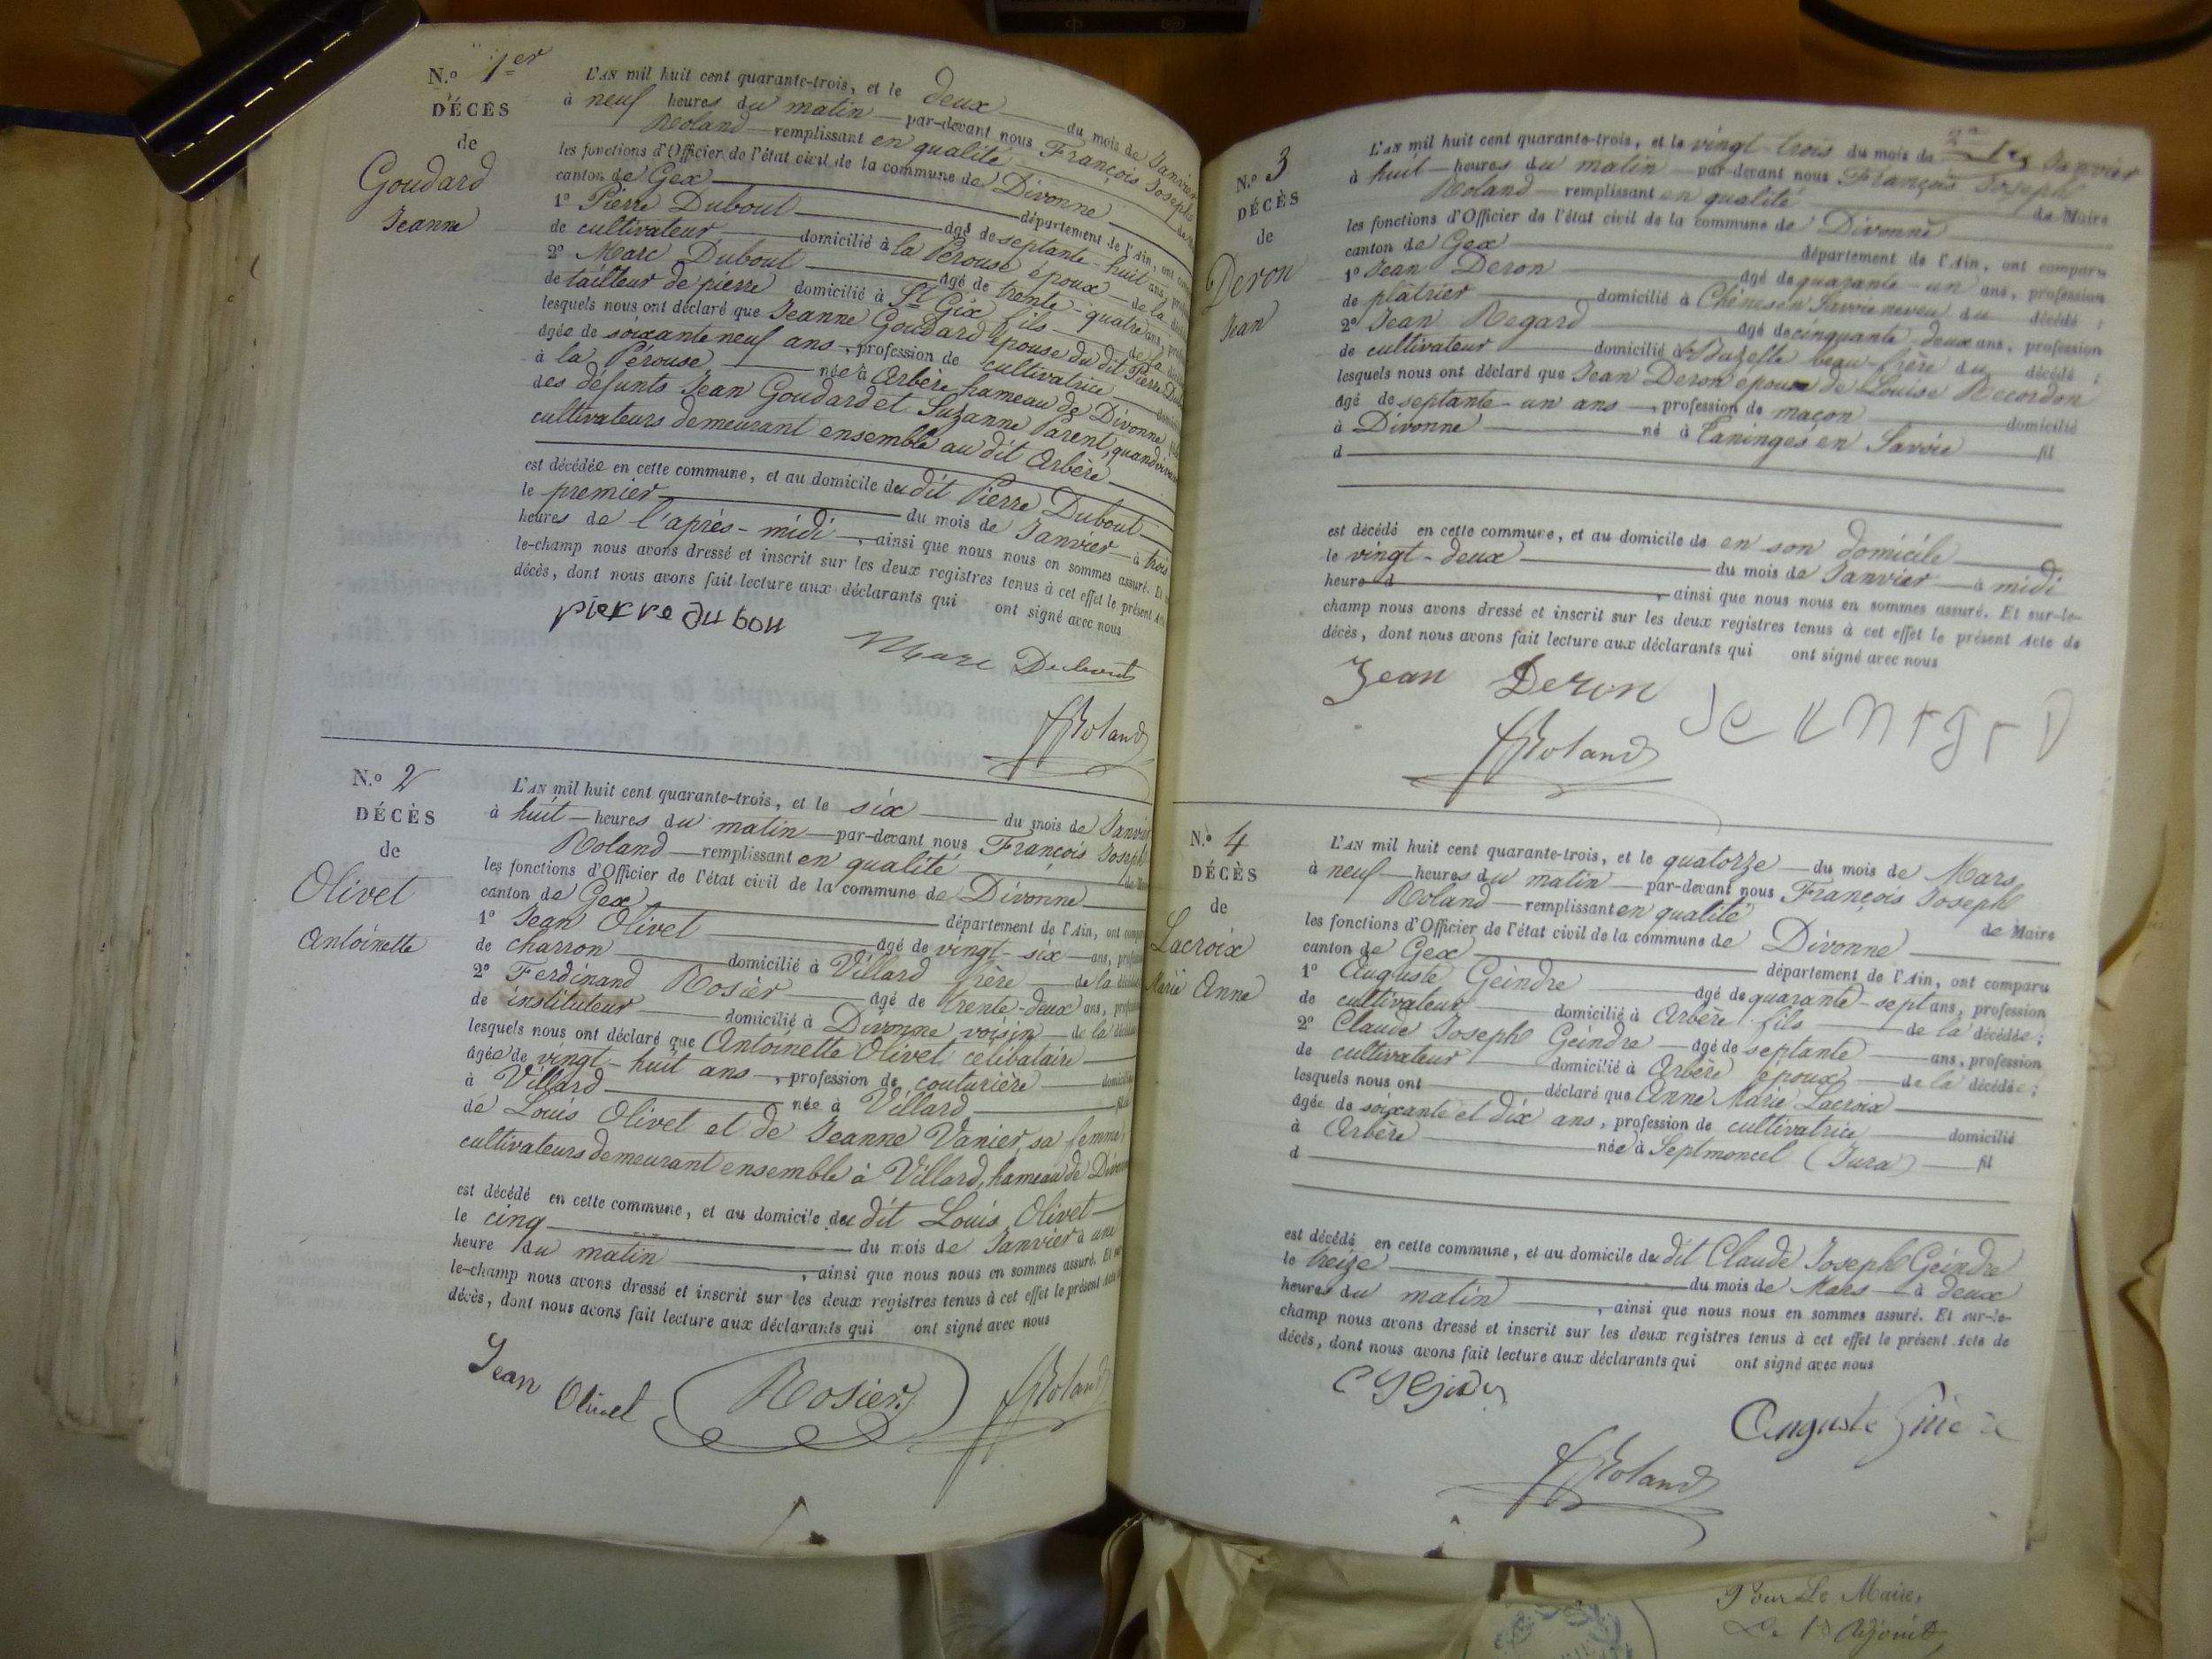 N.º 1er
DÉCÈS
de
Goudard
Jeanne
L'AN mil huit cent quarante-trois, et le deux du mois de Janvier
à neuf heures du matin par-devant nous François Joseph
Roland remplissant en qualité
les fonctions d'Officier de l'état civil de la commune de Divonne
canton de Gex département de l'Ain, ont
1º Pierre Dubout âgé de septante-huit ans,
de cultivateur domicilié à la Pérouse époux de la
2º Marc Dubout âgé de trente-quatre ans,
de tailleur de pierre domicilié à St Gix fils de la
lesquels nous ont déclaré que Jeanne Goudard épouse du dit Pierre
âgée de soixante neuf ans, profession de cultivatrice
à la Pérouse née à Arbère hameau de Divonne
des défunts Jean Goudard et Suzanne Parent, quand
cultivateurs demeurant ensemble au dit Arbère
est décédée en cette commune, et au domicile du dit Pierre Dubout
le premier du mois de Janvier à trois
heures de l'après-midi, ainsi que nous nous en sommes assuré. Et
le-champ nous avons dressé et inscrit sur les deux registres tenus à cet effet le présent
décès, dont nous avons fait lecture aux déclarants qui ont signé avec nous
pierre du bou
Marc Dubout
fRoland
N.º 2
DÉCÈS
de
Olivet
Antoinette
L'AN mil huit cent quarante-trois, et le six du mois de
à huit heures du matin par-devant nous François Joseph
Roland remplissant en qualité
les fonctions d'Officier de l'état civil de la commune de Divonne
canton de Gex département de l'Ain, ont
1º Jean Olivet âgé de vingt-six ans,
de charron domicilié à Villard frère de la
2º Ferdinand Rosier âgé de trente-deux ans,
de instituteur domicilié à Divonne voisin de la
lesquels nous ont déclaré que Antoinette Olivet célibataire
âgée de vingt-huit ans, profession de couturière
à Villard née à Villard
de Louis Olivet et de Jeanne Vanier, sa femme
cultivateurs demeurant ensemble à Villard, hameau de
est décédé en cette commune, et au domicile du dit Louis Olivet
le cinq du mois de Janvier à une
heure du matin, ainsi que nous nous en sommes assuré. Et
le-champ nous avons dressé et inscrit sur les deux registres tenus à cet effet le présent
décès, dont nous avons fait lecture aux déclarants qui ont signé avec nous
Jean Olivet Rosier fRoland
N.º 3
DÉCÈS
de
Deron
Jean
L'AN mil huit cent quarante-trois, et le vingt-trois du mois de Janvier
à huit heures du matin par-devant nous François Joseph
Roland remplissant en qualité de Maire
les fonctions d'Officier de l'état civil de la commune de Divonne
canton de Gex département de l'Ain, ont comparu
1º Jean Deron âgé de quarante-un ans, profession
de plâtrier domicilié à Chênes en Savoie neveu du décédé;
2º Jean Regard âgé de cinquante-deux ans, profession
de cultivateur domicilié à beau-frère du décédé;
lesquels nous ont déclaré que Jean Deron époux de Louise Recordon
âgé de septante-un ans, profession de maçon domicilié
à Divonne né à Taninges en Savoie fil
d
est décédé en cette commune, et au domicile de en son domicile
le vingt-deux du mois de Janvier à midi
heure d, ainsi que nous nous en sommes assuré. Et sur-le-
champ nous avons dressé et inscrit sur les deux registres tenus à cet effet le présent Acte de
décès, dont nous avons fait lecture aux déclarants qui ont signé avec nous
Jean Deron
fRoland
N.º 4
DÉCÈS
de
Lacroix
Marie Anne
L'AN mil huit cent quarante-trois, et le quatorze du mois de Mars
à neuf heures du matin par-devant nous François Joseph
Roland remplissant en qualité de Maire
les fonctions d'Officier de l'état civil de la commune de Divonne
canton de Gex département de l'Ain, ont comparu
1º Auguste Geindre âgé de quarante-sept ans, profession
de cultivateur domicilié à Arbère fils de la décédée;
2º Claude Joseph Geindre âgé de septante ans, profession
de cultivateur domicilié à Arbère époux de la décédée;
lesquels nous ont déclaré que Anne Marie Lacroix
âgée de soixante et dix ans, profession de cultivatrice domicilié
à Arbère née à Septmoncel (Jura) fil
d
est décédé en cette commune, et au domicile du dit Claude Joseph Geindre
le treize du mois de Mars à deux
heures du matin, ainsi que nous nous en sommes assuré. Et sur-le-
champ nous avons dressé et inscrit sur les deux registres tenus à cet effet le présent Acte de
décès, dont nous avons fait lecture aux déclarants qui ont signé avec nous
Auguste
fRoland
Pour Le Maire,